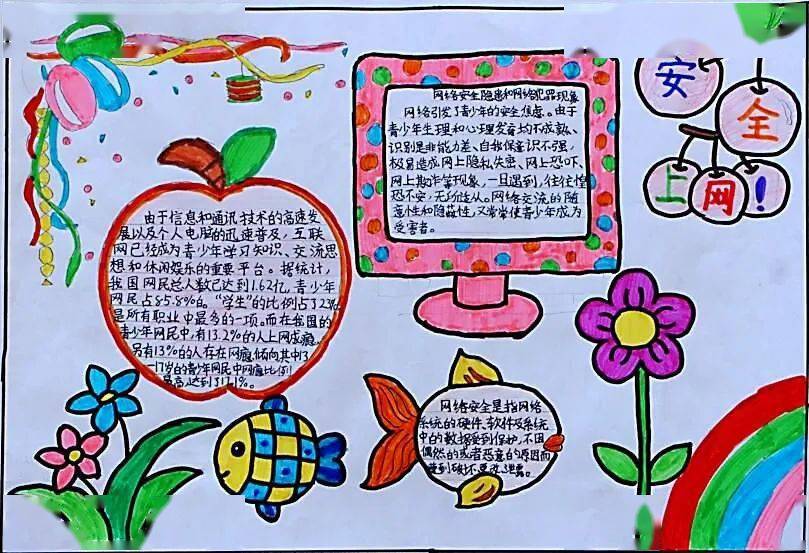 安
全
上网!
网络安全隐患和网络犯罪现象
网络引发了青少年的安全焦虑。由于
青少年生理和心理发育均不成熟、
识别是非能力差、自我保音识不强,
极易造成网上隐私失密、网上恐吓、
网上欺诈等现象,一旦遇到,往往惶
恐不安,无所适从。网络交流的随
意性和隐蔽性,又常常使青少年成为
受害者。
由于信息和通讯技术的高速发
展以及个人电脑的迅速普及,互联
网已经成为青少年学习知识、交流思
想和休闲娱乐的重要平台。据统计,
我国网民总人数已达到1.62亿,青少年
网民占85.8%的。“学生”的比例占了32%,
是所有职业中最多的一项。而在我国的
青少年网民中,有13.2%的人上网成瘾,
另有13%的人存在网瘾倾向其中13
-17岁的青少年网民中网瘾比例
最高,达到了17.1%。
网络安全是指网络
系统的硬件、软件及系统
中的数据受到保护,不因
偶然的或者恶意的原因而
受到破坏更改泄露。